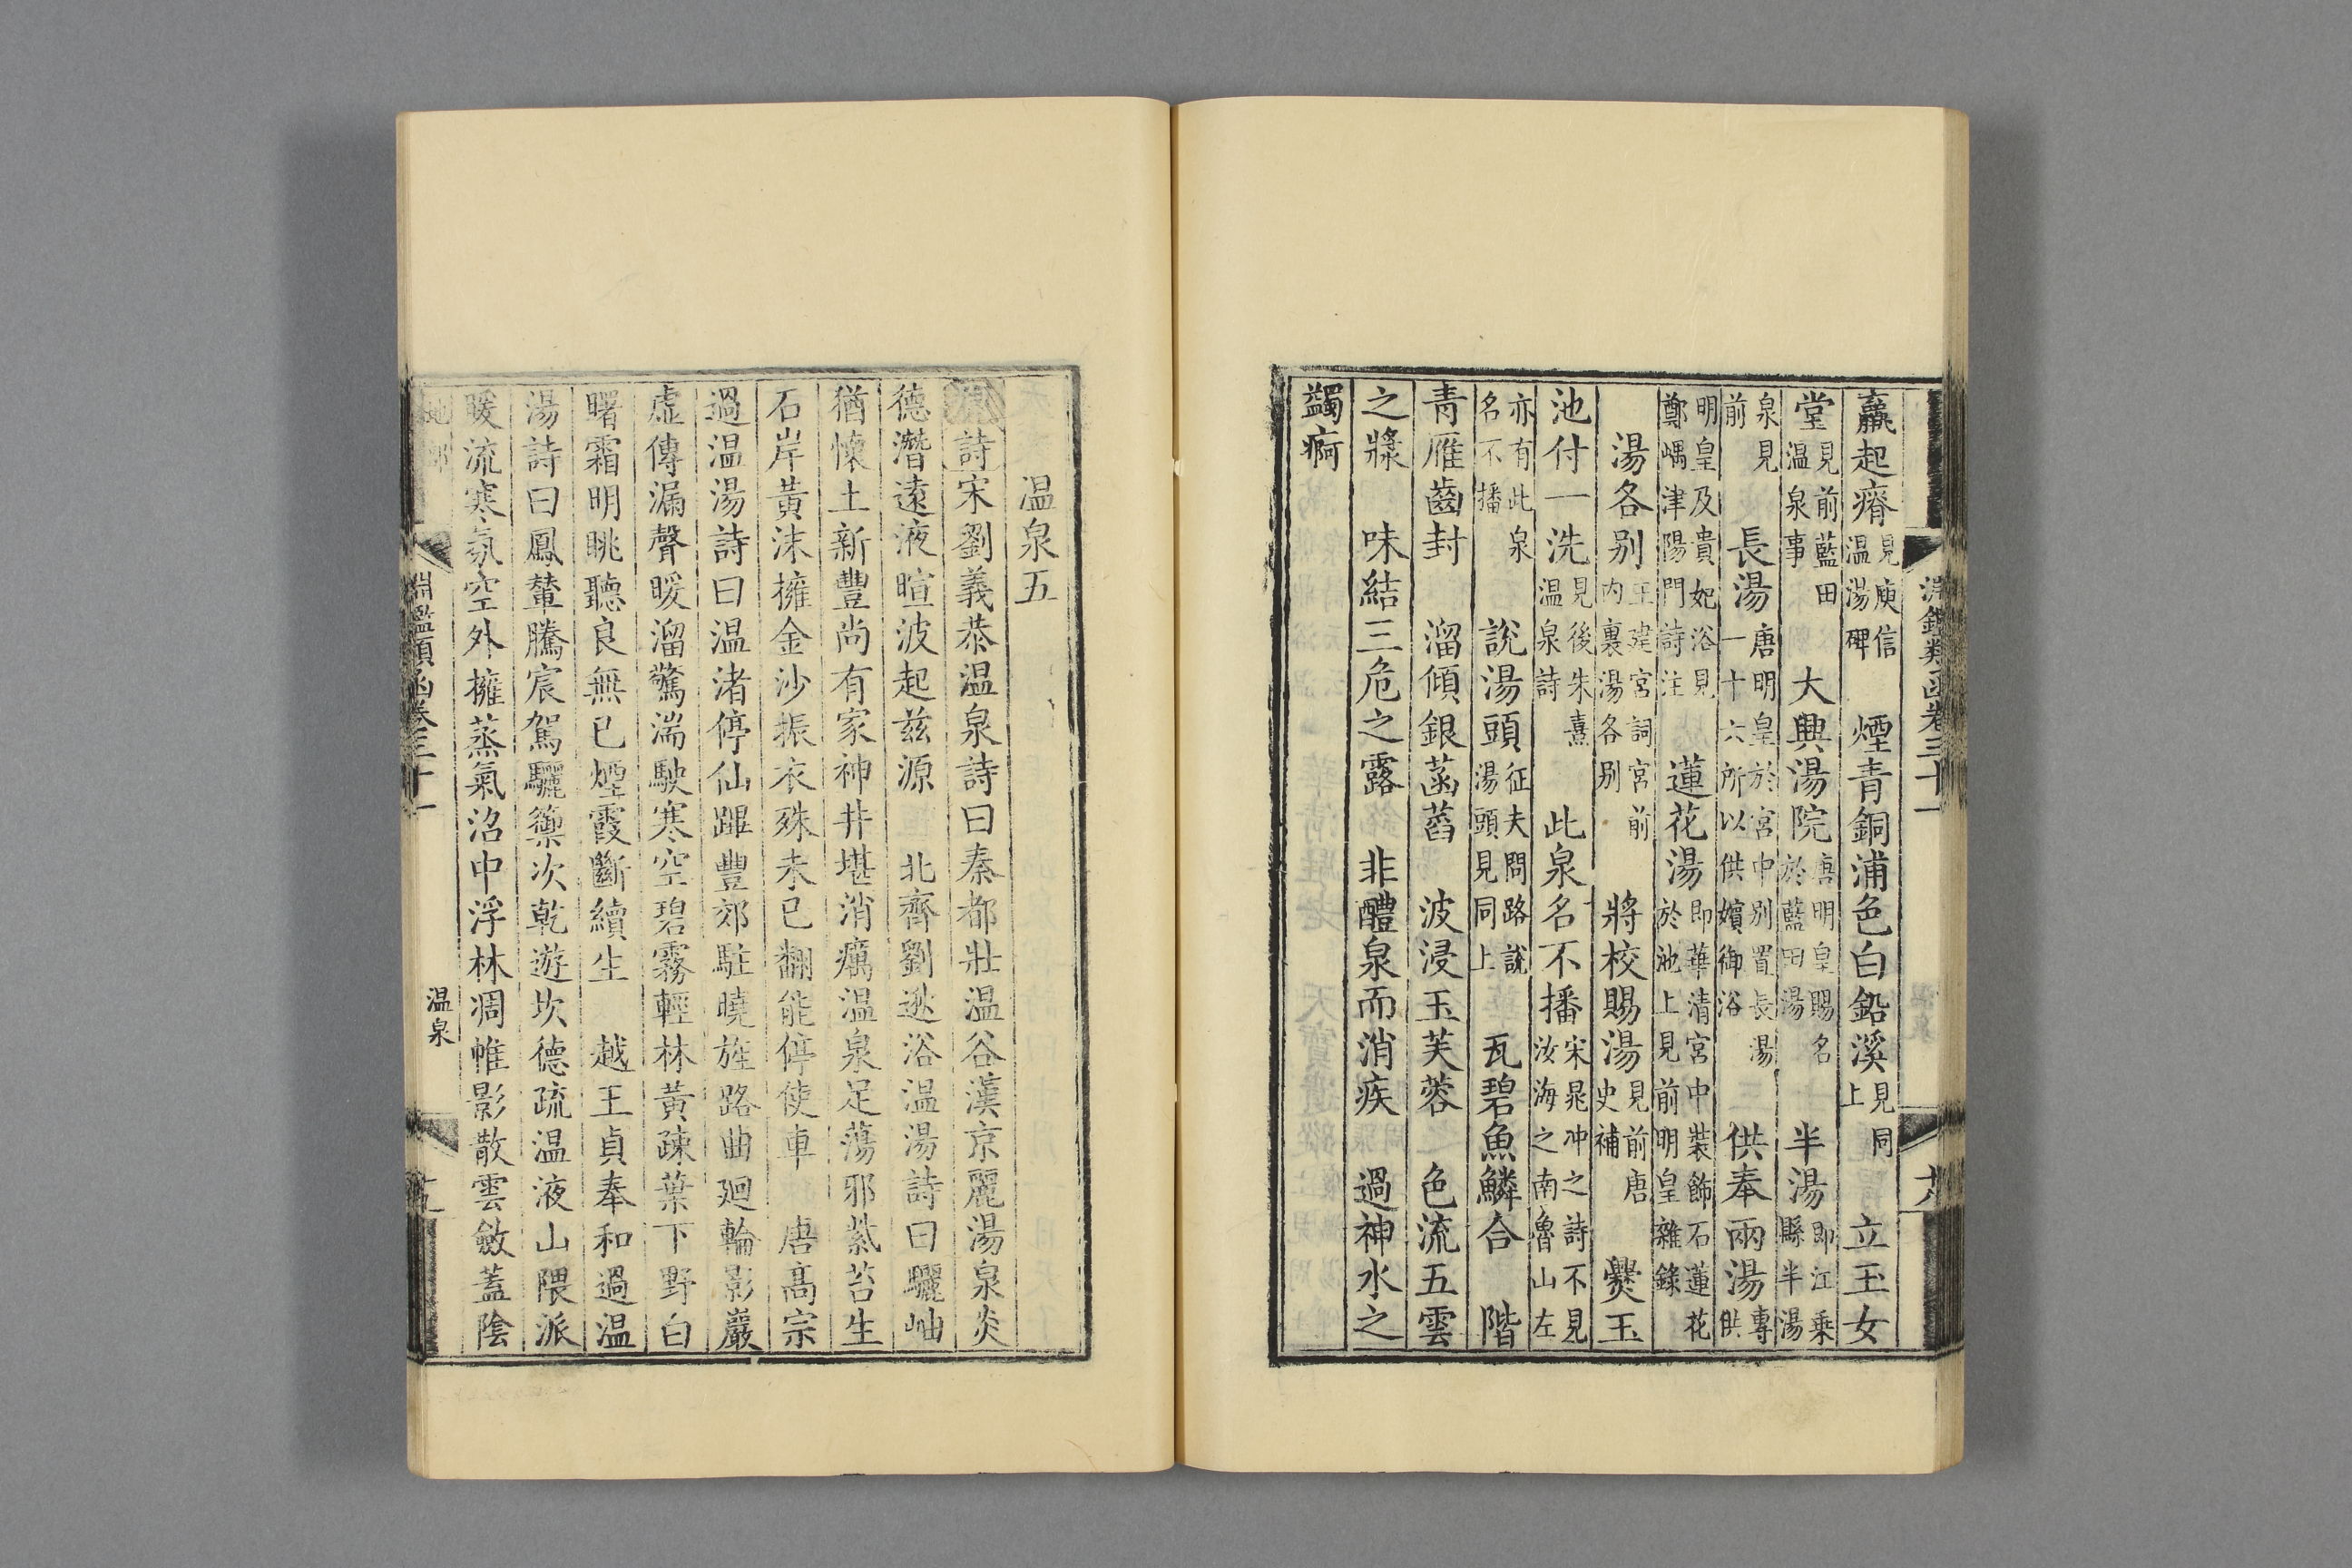 淵鑑類函卷三十一
羸起瘠見庾信溫湯碑 煙青銅浦色白鉛溪見同上 立玉女
堂見前藍田溫泉事 大興湯院唐明皇賜名於藍田湯 半湯即江乘縣半湯
泉見前 長湯唐明皇於宮中別置長湯一十六所以供嬪御浴 供奉兩湯專供
明皇及貴妃浴見鄭嵎津陽門詩注 蓮花湯即華清宮中裝飾石蓮花於池上見前明皇雜錄
湯各別王建宮詞宮前內裏湯各別 將校賜湯見前唐史補 爨玉
池付一洗見後朱熹溫泉詩 此泉名不播宋晁冲之詩不見汝海之南魯山左
亦有此泉名不播 說湯頭征夫問路說湯頭見同上 瓦碧魚鱗合 階
青雁齒封 溜傾銀菡萏 波浸玉芙蓉 色流五雲
之漿 味結三危之露 非醴泉而消疾 過神水之
蠲痾
溫泉五
詩宋劉義恭溫泉詩曰秦都壯溫谷漢京麗湯泉炎
德潛遠液暄波起茲源 北齊劉逖浴溫湯詩曰驪岫
猶懷土新豐尚有家神井堪消癘溫泉足蕩邪紫苔生
石岸黃沫擁金沙振衣殊未已翻能停使車 唐高宗
過溫湯詩曰溫渚停仙蹕豐郊駐曉旌路曲廻輪影巖
虛傳漏聲暖溜驚湍駛寒空碧霧輕林黃疎葉下野白
曙霜明眺聽良無已煙霞斷續生 越王貞奉和過溫
湯詩曰鳳輦騰宸駕驪籞次乾遊坎德疏溫液山隈派
暖流寒氛空外擁蒸氣沼中浮林凋帷影散雲斂蓋陰
淵鑑類函卷三十一 溫泉